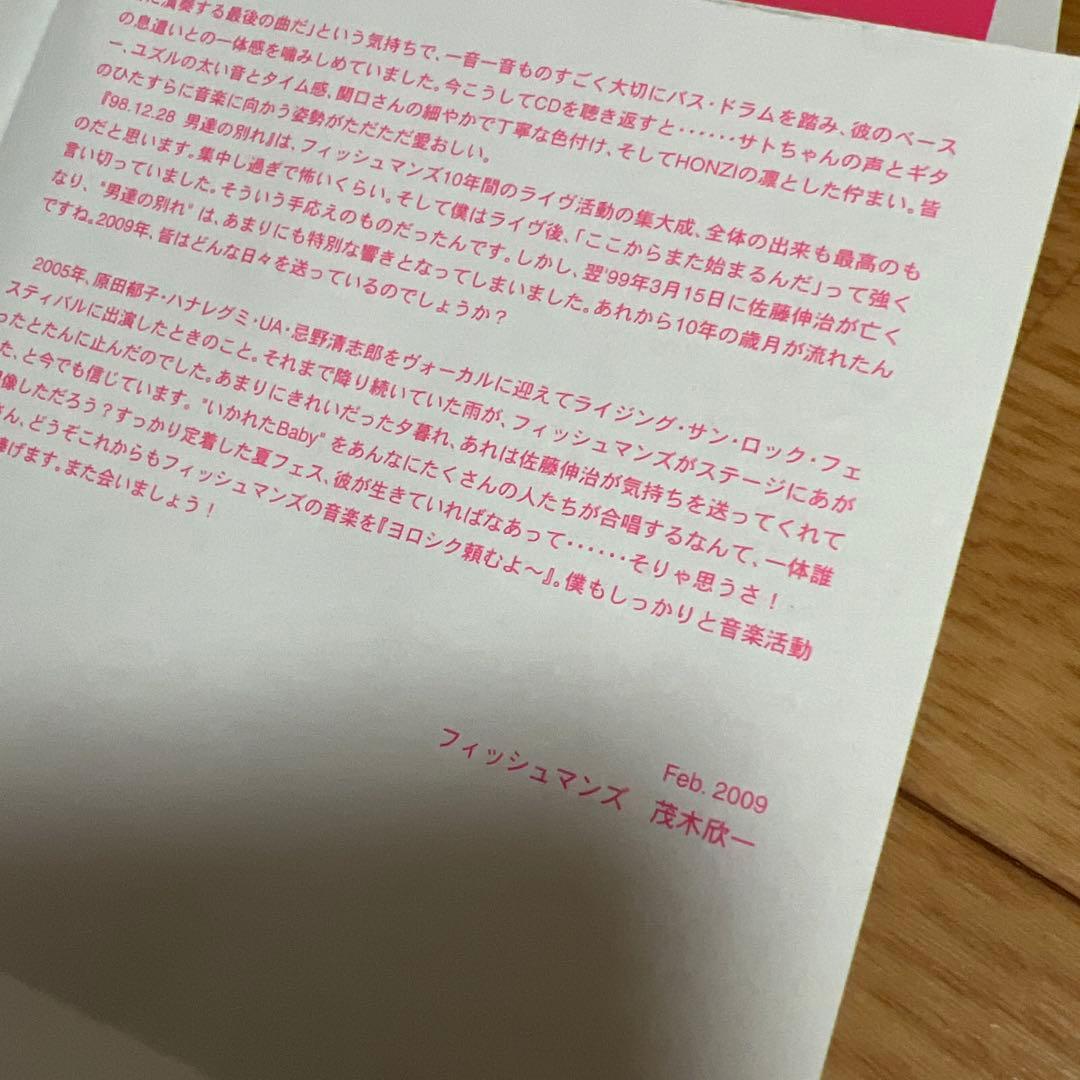 に演奏する最後の曲だ」という気持ちで、一音一音ものすごく大切にバス・ドラムを踏み、彼のベース
の息遣いとの一体感を噛みしめていました。今こうしてCDを聴き返すと‥‥‥サトちゃんの声とギタ
ー、ユズルの太い音とタイム感、関口さんの細やかで丁寧な色付け、そしてHONZIの凛とした佇まい。皆
のひたすらに音楽に向かう姿勢がただただ愛おしい。
『98.12.28 男達の別れ』は、フィッシュマンズ10年間のライヴ活動の集大成、全体の出来も最高のも
のだと思います。集中し過ぎで怖いくらい。そして僕はライヴ後、「ここからまた始まるんだ」って強く
言い切っていました。そういう手応えのものだったんです。しかし、翌'99年3月15日に佐藤伸治が亡く
なり、"男達の別れ"は、あまりにも特別な響きとなってしまいました。あれから10年の歳月が流れたん
ですね。2009年、皆はどんな日々を送っているのでしょうか？
2005年、原田郁子・ハナレグミ・UA・忌野清志郎をヴォーカルに迎えてライジング・サン・ロック・フェ
スティバルに出演したときのこと。それまで降り続いていた雨が、フィッシュマンズがステージにあが
ったとたんに止んだのでした。あまりにきれいだった夕暮れ、あれは佐藤伸治が気持ちを送ってくれて
た、と今でも信じています。"いかれたBaby"をあんなにたくさんの人たちが合唱するなんて、一体誰
像しただろう？すっかり定着した夏フェス、彼が生きていればなあって‥‥‥そりゃ思うさ！
さん、どうぞこれからもフィッシュマンズの音楽を『ヨロシク頼むよ～』。僕もしっかりと音楽活動
げます。また会いましょう！
Feb. 2009
フィッシュマンズ 茂木欣一